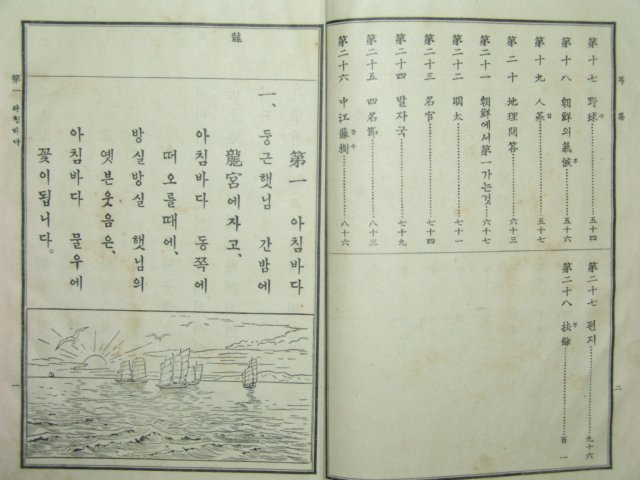 目次
第十七 野球 五十四
第十八 朝鮮의氣候 五十六
第十九 人蔘 五十七
第二十 地理問答 六十三
第二十一 朝鮮에서第一가는것 六十七
第二十二 明太 七十一
第二十三 名官 七十四
第二十四 발자국 七十九
第二十五 四名節 八十三
第二十六 中江藤樹 八十六
第二十七 편지 九十六
第二十八 扶餘 百一
二
龍
第一 아침바다
一
第一 아침바다
一、 둥근햇님 간밤에
龍宮에자고、
아침바다 동쪽에
떠오를때에、
방실방실 햇님의
옛븐웃음은、
아침바다 물우에
꽃이됩니다。